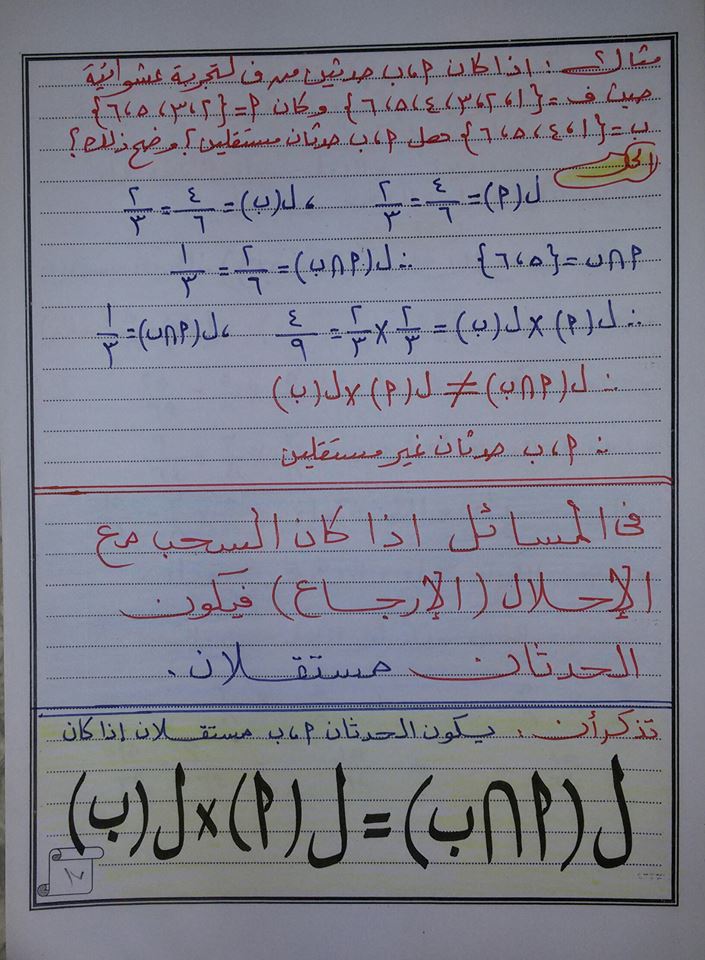 مثال ٢ : اذا كان P، ب حدثين من ف لتجربة عشوائية
حيث ف = {١، ٢، ٣، ٤، ٥، ٦} وكان P = {٢، ٣، ٥، ٦}
ب = {١، ٤، ٥، ٦} هل P، ب حدثان مستقلين؟ وضح ذلك؟
الحل
ل(P) = ٤/٦ = ٢/٣ ، ل(ب) = ٤/٦ = ٢/٣
P∩ب = {٥، ٦} ∴ ل(P∩ب) = ٢/٦ = ١/٣
∴ ل(P) × ل(ب) = ٢/٣ × ٢/٣ = ٤/٩ ، ل(P∩ب) = ١/٣
∴ ل(P∩ب) ≠ ل(P) × ل(ب)
∴ P، ب حدثان غير مستقلين
فى المسائل اذا كان السحب مع
الإحلال (الإرجاع) فيكون
الحدثان مستقلان.
تذكر أن : يكون الحدثان P، ب مستقلان إذا كان
ل(P∩ب) = ل(P) × ل(ب)